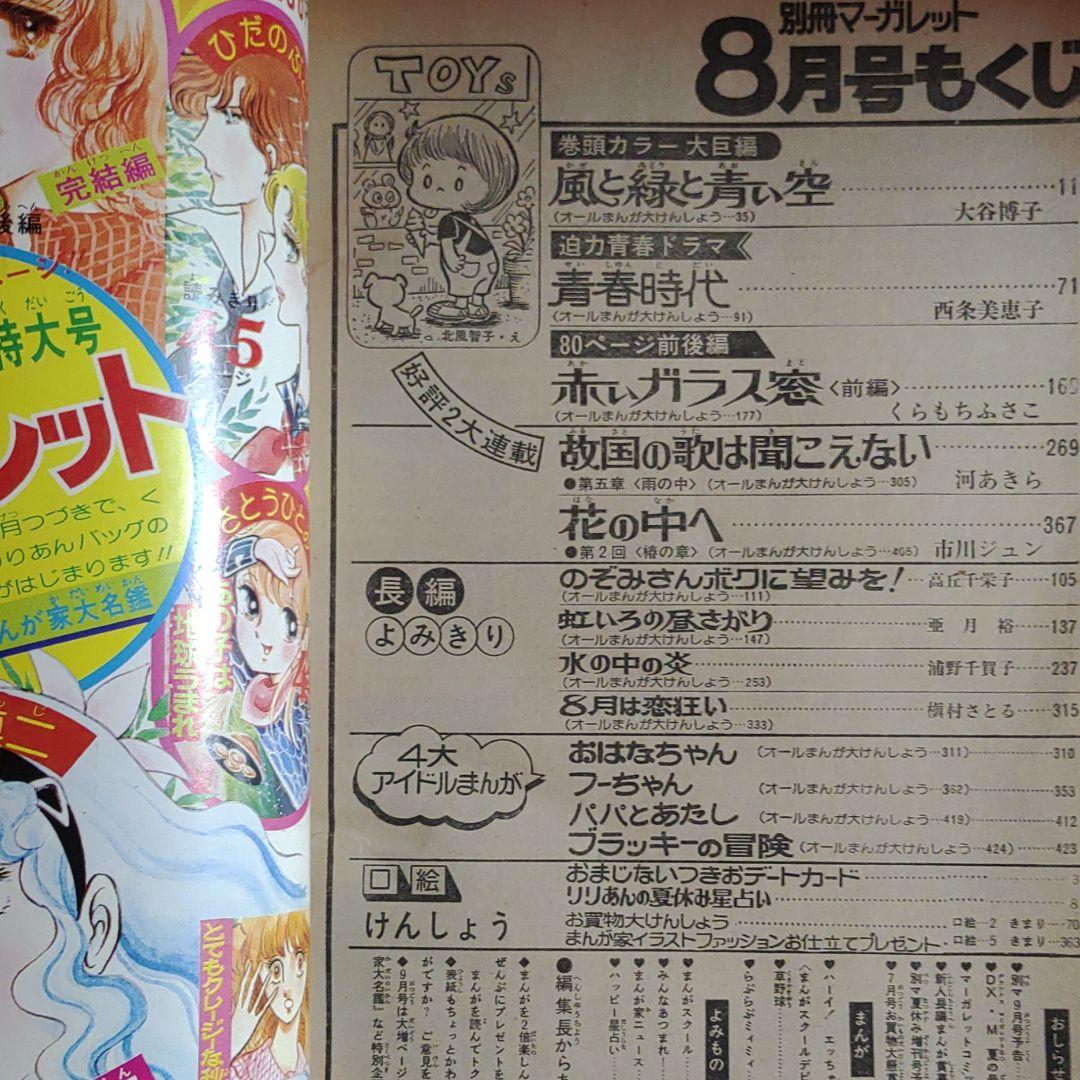 別冊マーガレット
8月号もくじ
TOYs
北風智子・え
巻頭カラー 大巨編
風と緑と青い空 11
(オールまんが大けんしょう…35)
大谷博子
迫力青春ドラマ
青春時代 71
(オールまんが大けんしょう…91)
西条美恵子
80ページ前後編
赤いガラス窓〈前編〉 169
(オールまんが大けんしょう…177)
くらもちふさこ
好評2大連載
故国の歌は聞こえない 269
●第五章〈雨の中〉(オールまんが大けんしょう…305) 河あきら
花の中へ 367
●第2回〈椿の章〉(オールまんが大けんしょう…405) 市川ジュン
長編
よみきり
のぞみさんボクに望みを! 高丘千栄子 105
(オールまんが大けんしょう…111)
虹いろの昼さがり 亜月裕 137
(オールまんが大けんしょう…147)
水の中の炎 浦野千賀子 237
(オールまんが大けんしょう…253)
8月は恋狂い 槇村さとる 315
(オールまんが大けんしょう…333)
4大
アイドルまんが
おはなちゃん (オールまんが大けんしょう…311) 310
フーちゃん (オールまんが大けんしょう…362) 353
パパとあたし (オールまんが大けんしょう…419) 412
ブラッキーの冒険 (オールまんが大けんしょう…424) 423
口絵
おまじないつきおデートカード 3
リリあんの夏休み星占い 8
けんしょう
お買物大けんしょう 口絵…2 きまり…70
まんが家イラストファッションお仕立てプレゼント・口絵…5 きまり…363
おしらせ
♥別マ9月号予告
♥DX・M 夏の
♥マーガレットコミッ
♥新人長編まんが賞募
♥別マ夏休み増刊号
♥7月号お買物大懸賞
まんが
♥ハーイ! エッちゃ
〈まんがスクールデビ
♥草野球
♥らぶらぶミィミィ
よみもの
♥まんがスクール
♥みんなあつまれ!
♥まんが家ニュース
♥ハッピー星占い
●編集長から
◆まんがを2倍楽しん
ぜんぶにプレゼントを
まんがを読んでトク
◆表紙もちょっとかわ
がですか? ご意見を
◆9月号は大増ページ
家大名鑑」など特別企
完結編
後編
ひだのぶ
特大号
45
レット
月つづきで、く
りりあんバッグの
がはじまります!!
んが家大名鑑
さとうひと
地球うまれ
とてもクレージーな